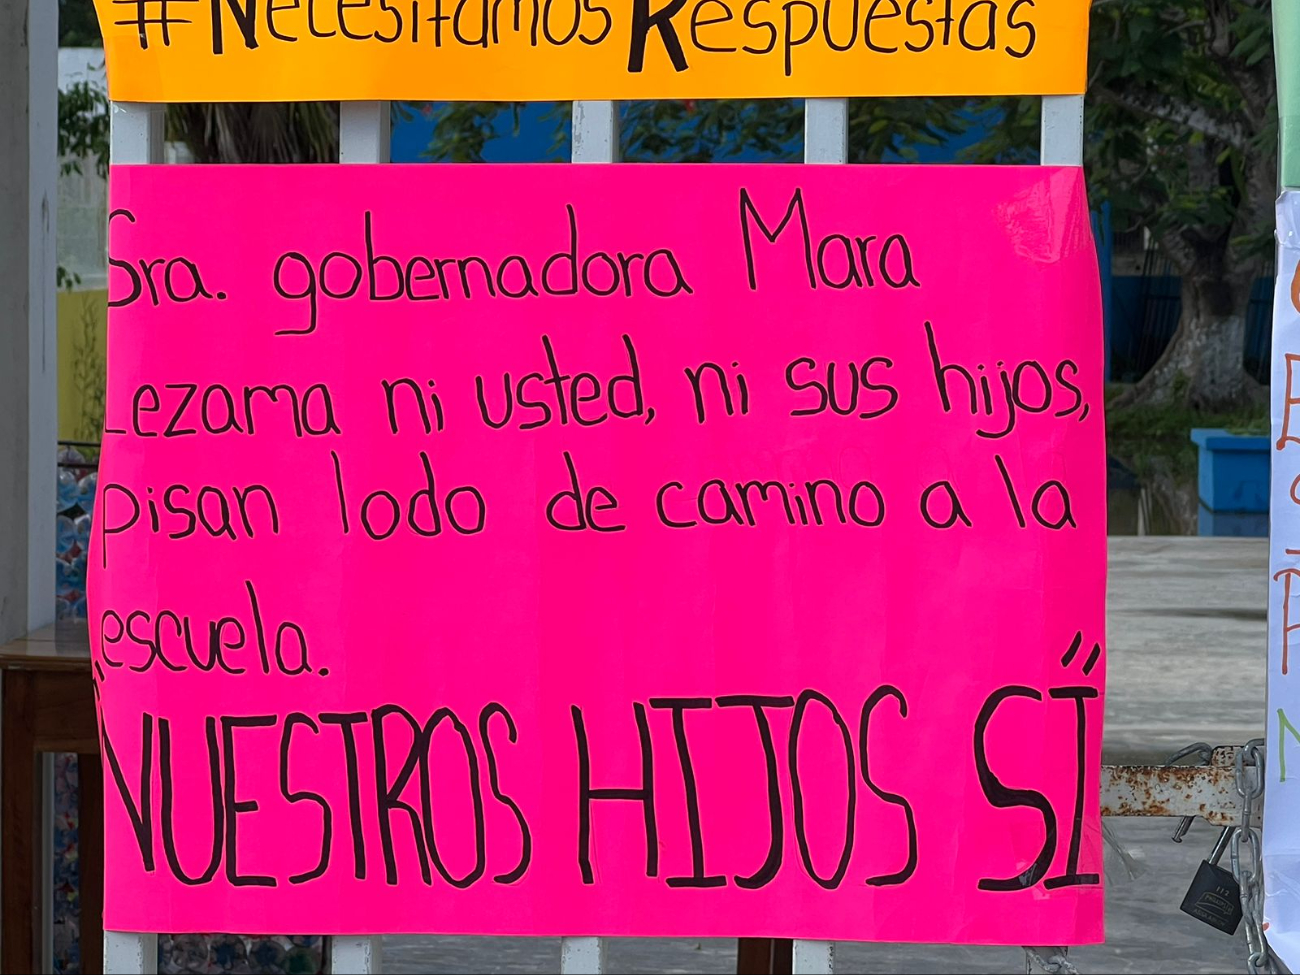 #Necesitamos Respuestas
Sra. gobernadora Mara
Lezama ni usted, ni sus hijos,
pisan lodo de camino a la
escuela.
"NUESTROS HIJOS SÍ"